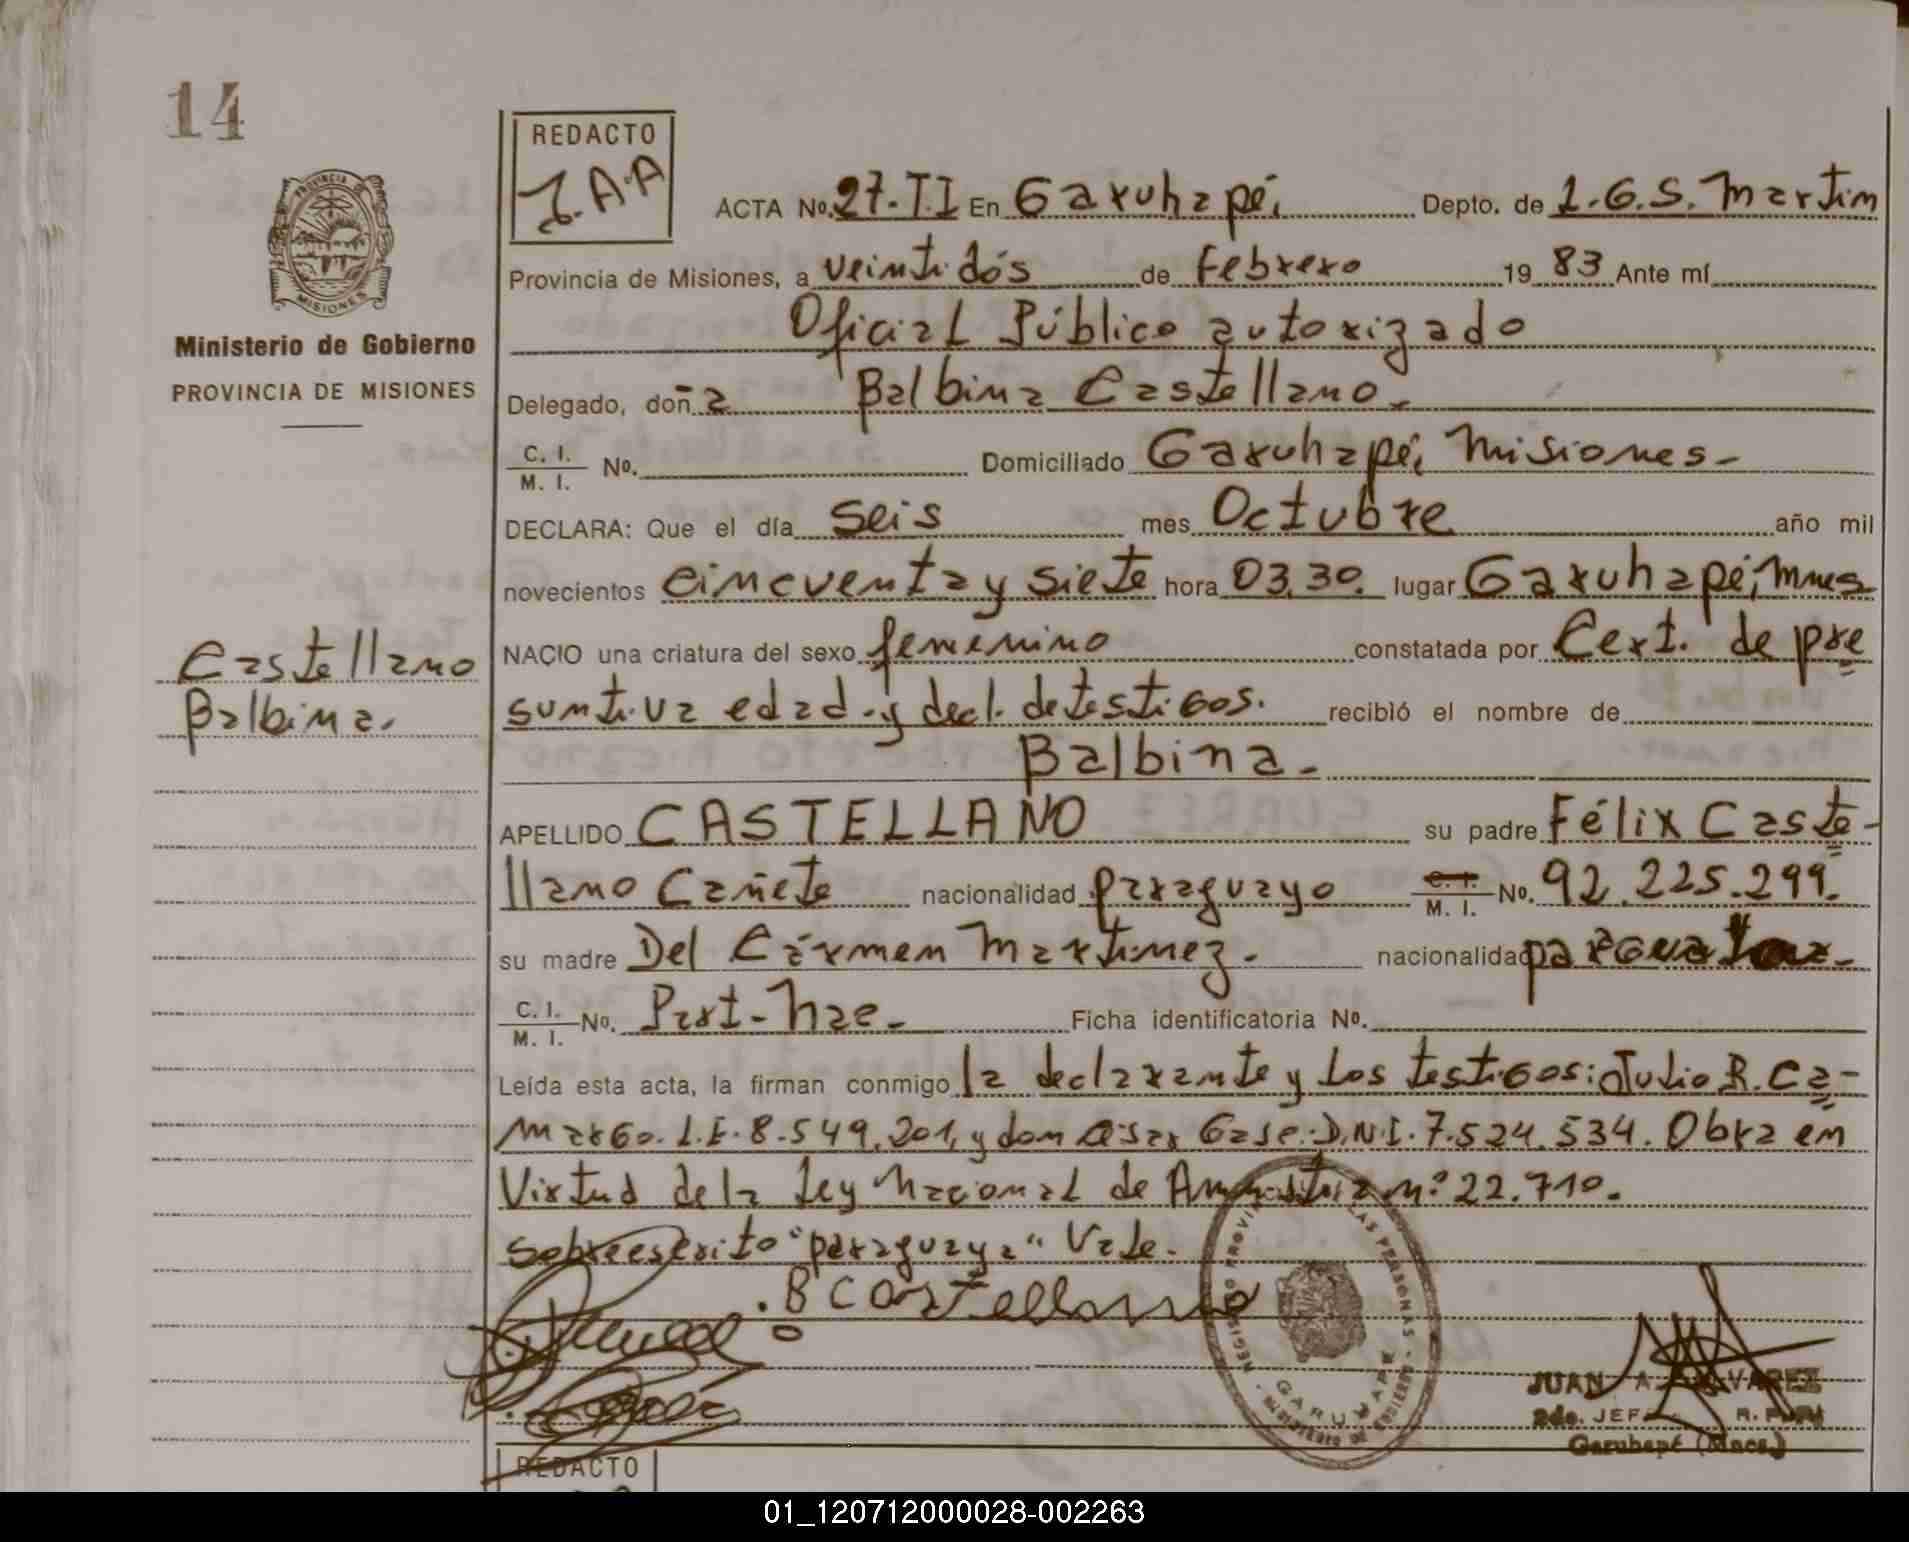 14
REDACTO
J.A.A
ACTA No. 27.T.I En Garuhapé, Depto. de L.G.S. Martin
Provincia de Misiones, a veintidós de Febrero 1983 Ante mí
Oficial Público autorizado
Delegado, doña Balbina Castellano.
C. I.
M. I. No. Domiciliado Garuhapé, Misiones-
DECLARA: Que el día seis mes Octubre año mil
novecientos cincuenta y siete hora 03.30. lugar Garuhapé, Mnes
NACIO una criatura del sexo femenino constatada por Cert. de pre
suntiva edad y decl. de testigos. recibió el nombre de
Balbina-
APELLIDO CASTELLANO su padre Félix Caste-
llano Cañete nacionalidad paraguayo C. I. M. I. No. 92.225.299.
su madre Del Cármen Martinez.- nacionalidad paraguaya-
C. I.
M. I. No. Part-Nac- Ficha identificatoria No.
Leída esta acta, la firman conmigo la declarante y los testigos: Julio R. Ca-
margo. L.E. 8.549.201, y don Obra en
D.N.I. 7.524.534.
Virtud de la Ley Nacional de Amnistia nº 22.710.
sobreescrito "paraguaya" Vale.
B Castellano
PROVINCIA DE
MISIONES
Ministerio de Gobierno
PROVINCIA DE MISIONES
Castellano
Balbina.
REGISTRO PROVIN LAS PERSONAS - MINISTERIO DE GOBIERNO
GARUHAPE
JUAN A. ALVAREZ
2do. JEFE R.P.P.
Garuhapé (Mnes.)
REDACTO
01_120712000028-002263